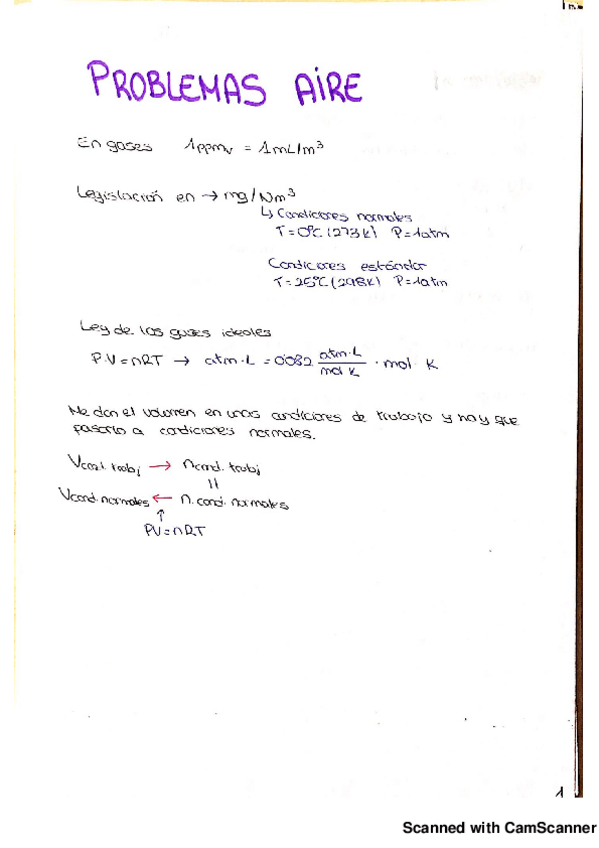 PROBLEMAS AIRE
En gases 1ppmv = 1mL/m³
Legislación en → mg/Nm³
↳ Condiciones normales
T=0ºC (273K) P=1atm
Condiciones estándar
T=25ºC (298K) P=1atm
Ley de los gases ideales
P·V=nRT → atm·L = 0'082 atm·L / mol K · mol K
Me dan el volumen en unas condiciones de trabajo y hay que
pasarlo a condiciones normales.
Vcond. trabj → n cond. trabj
||
Vcond. normales ← n. cond. normales
↑
PV=nRT
1
Scanned with CamScanner